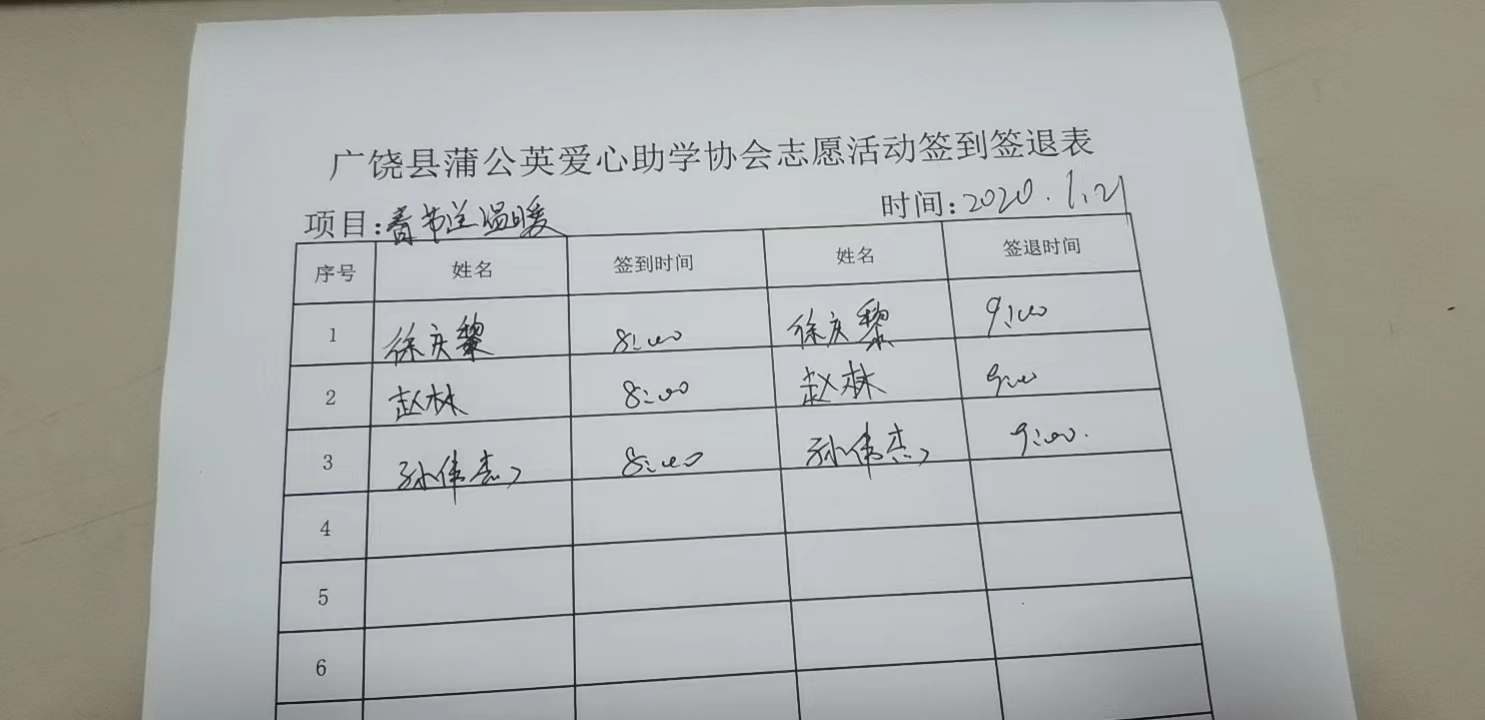 广饶县蒲公英爱心助学协会志愿活动签到签退表
项目:春节送温暖 时间:2020.1.21
序号 姓名 签到时间 姓名 签退时间
1 徐庆黎 8:00 徐庆黎 9:00
2 赵林 8:00 赵林 9:00
3 孙伟杰 8:00 孙伟杰 9:00.
4
5
6